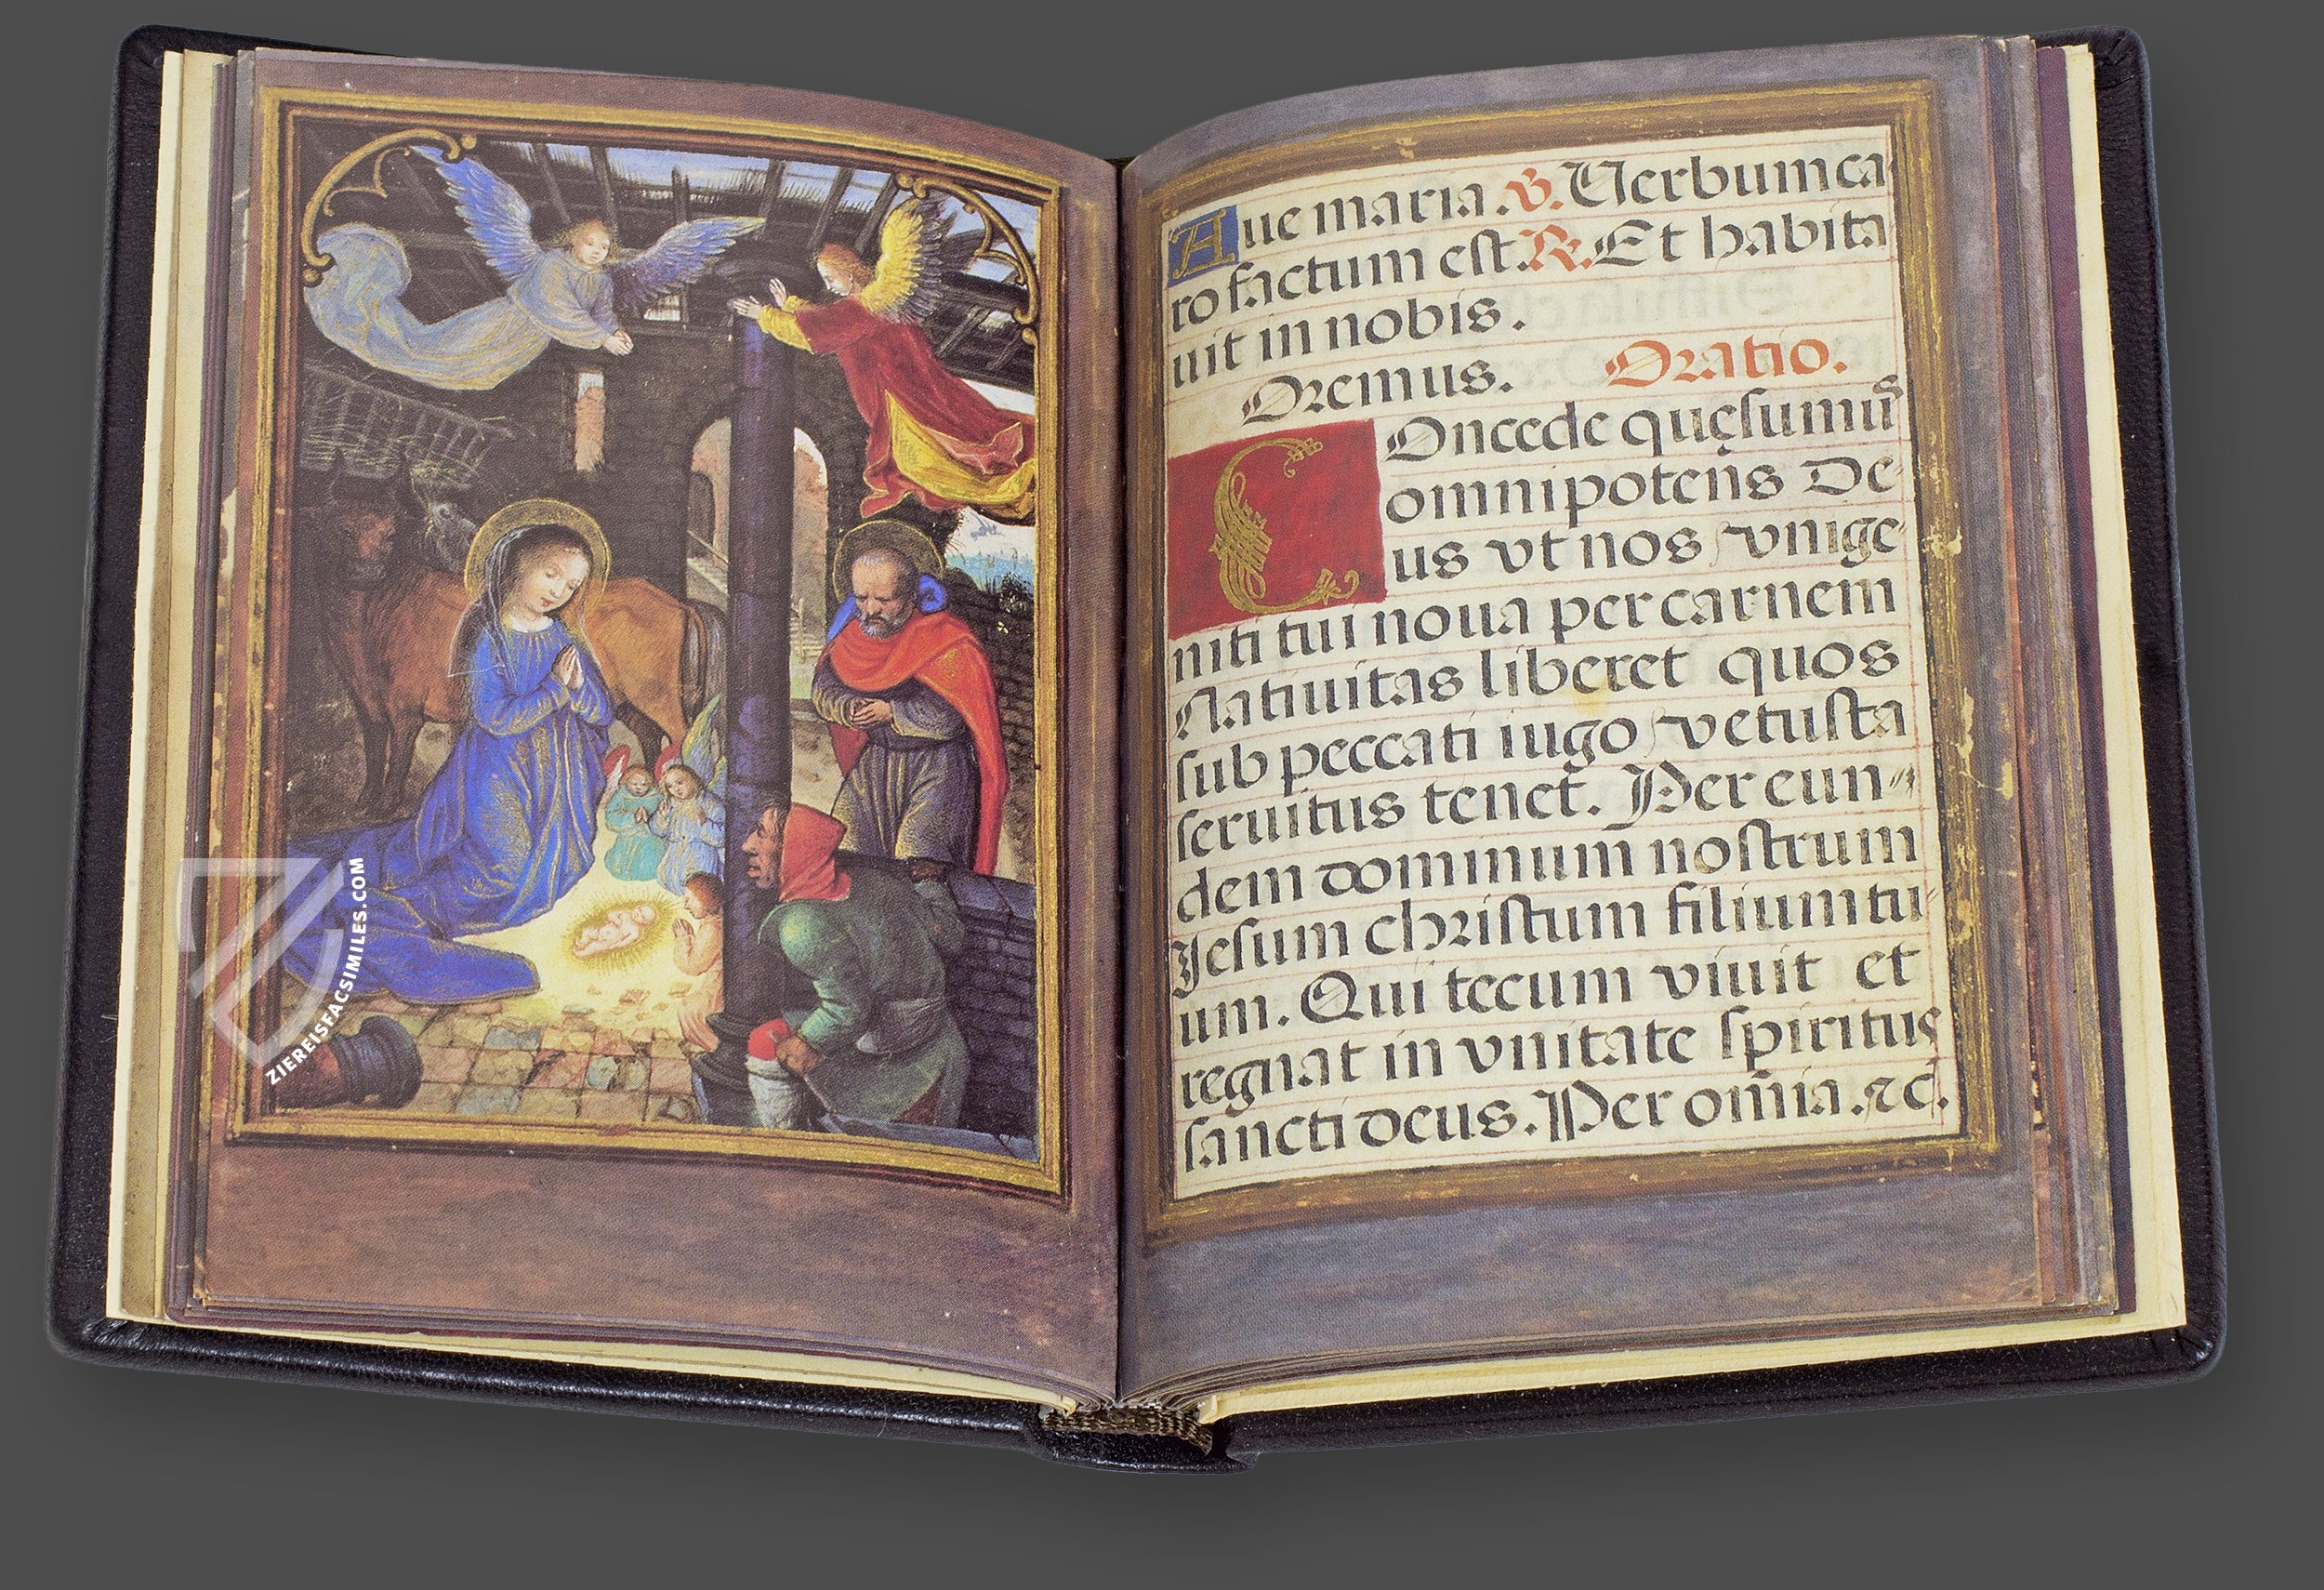 Aue maria. V. Uerbum ca
ro factum est. R. Et habita
uit in nobis.
Oremus. Oratio.
Concede quęsumus
omnipotens De
us vt nos vnige
niti tui noua per carnem
Natiuitas liberet quos
sub peccati iugo vetusta
seruitus tenet. Per eun-
dem dominum nostrum
Jesum christum filium tu-
um. Qui tecum viuit et
regnat in vnitate spiritus
sancti deus. Per om̄ia. ⁊c.
ZIEREISFACSIMILES.COM